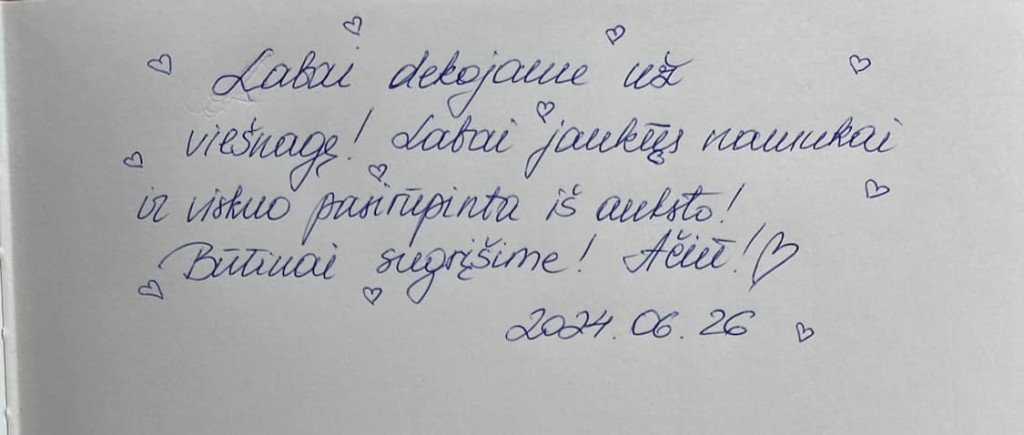 Labai dekojame už
viešnagę! Labai jaukūs namukai
ir viskuo pasirūpinta iš auksto!
Būtinai sugrįšime! Ačiū!
2024.06.26